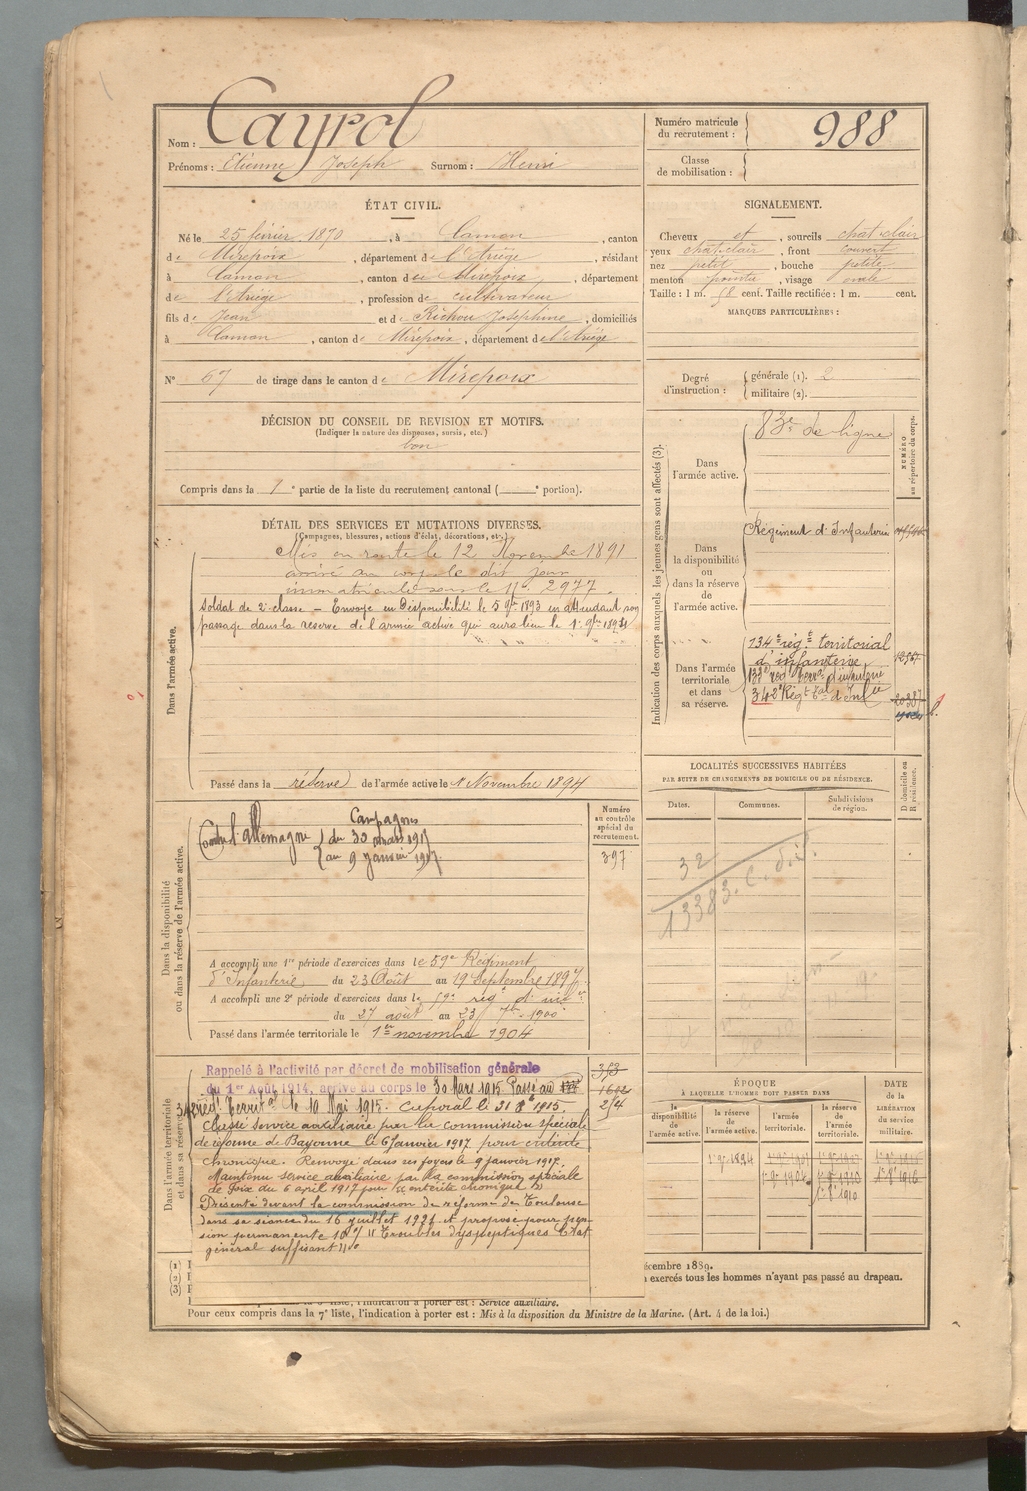 Nom : Cayrol
Prénoms : Etienne Joseph Surnom : Henri
Numéro matricule du recrutement : 988
Classe de mobilisation :
ÉTAT CIVIL.
Né le 25 février 1870, à Camon, canton
de Mirepoix, département de l'Ariège, résidant
à Camon, canton de Mirepoix, département
de l'Ariège, profession de cultivateur
fils de Jean et de Richou Joséphine, domiciliés
à Camon, canton de Mirepoix, département de l'Ariège
SIGNALEMENT.
Cheveux et, sourcils chat-clair
yeux chat-clair, front couvert
nez petit, bouche petite
menton pointu, visage ovale
Taille : 1 m. 58 cent. Taille rectifiée : 1 m. cent.
MARQUES PARTICULIÈRES :
N° 67 de tirage dans le canton de Mirepoix
Degré d'instruction : générale (1). 2
militaire (2).
DÉCISION DU CONSEIL DE REVISION ET MOTIFS.
(Indiquer la nature des dispenses, sursis, etc.)
bon
Compris dans la 1e partie de la liste du recrutement cantonal ( e portion).
DÉTAIL DES SERVICES ET MUTATIONS DIVERSES.
(Campagnes, blessures, actions d'éclat, décorations, etc.)
Dans l'armée active.
Mis en route le 12 Novembre 1891
arrivé au corps le dit jour
immatriculé sous le N° 2977.
Soldat de 2e classe – Envoyé en Disponibilité le 5 9bre 1893 en attendant son
passage dans la réserve de l'armée active qui aura lieu le 1er 9bre 1894
Passé dans la réserve de l'armée active le 1 Novembre 1894
Indication des corps auxquels les jeunes gens sont affectés (3).
NUMÉRO au répertoire du corps.
Dans l'armée active.
83e de ligne
Dans la disponibilité ou dans la réserve de l'armée active.
Régiment d'Infanterie
Dans l'armée territoriale et dans sa réserve.
134e rég. t territorial
d'infanterie
133e rég. Terr. d'infanterie
342e Rég t Tal d'Inf ie
LOCALITÉS SUCCESSIVES HABITÉES
PAR SUITE DE CHANGEMENTS DE DOMICILE OU DE RÉSIDENCE.
Dates. Communes. Subdivisions de région. D domicile ou R résidence.
32
13383.
Dans la disponibilité ou dans la réserve de l'armée active.
Numéro au contrôle spécial du recrutement.
397
Campagnes
Contre l'allemagne du 30 mars 1915
au 9 janvier 1917
A accompli une 1re période d'exercices dans le 59e Régiment
d'Infanterie du 23 Août au 19 Septembre 1897
A accompli une 2e période d'exercices dans le 59e rég t d'inf ie
du 27 août au 23 7bre 1900
Passé dans l'armée territoriale le 1er novembre 1904
Dans l'armée territoriale et dans sa réserve.
Rappelé à l'activité par décret de mobilisation générale
du 1er Août 1914, arrivé au corps le 30 Mars 1915 Passé au
342e rég t Territ al le 10 Mai 1915. Caporal le 31 8bre 1915.
Classé service auxiliaire par la commission spéciale
de réforme de Bayonne le 6 Janvier 1917 pour entérite
chronique. Renvoyé dans ses foyers le 9 janvier 1917.
Maintenu service auxiliaire par la commission spéciale
de Foix du 6 avril 1917 pour « entérite chronique »
Présenté devant la commission de réforme de Toulouse
dans sa séance du 16 juillet 1921 et proposé pour pen-
sion permanente 10 % "Troubles dyspeptiques Etat
général suffisant".
353
1602
214
ÉPOQUE
À LAQUELLE L'HOMME DOIT PASSER DANS
la disponibilité de l'armée active. la réserve de l'armée active. l'armée territoriale. la réserve de l'armée territoriale.
DATE de la LIBÉRATION du service militaire.
1er 9bre 1894
1er 9bre 1904
1er 8bre 1910
1er 8bre 1916
(1)
(2)
(3)
écembre 1889.
exercés tous les hommes n'ayant pas passé au drapeau.
liste, l'indication à porter est : Service auxiliaire.
Pour ceux compris dans la 7e liste, l'indication à porter est : Mis à la disposition du Ministre de la Marine. (Art. 4 de la loi.)